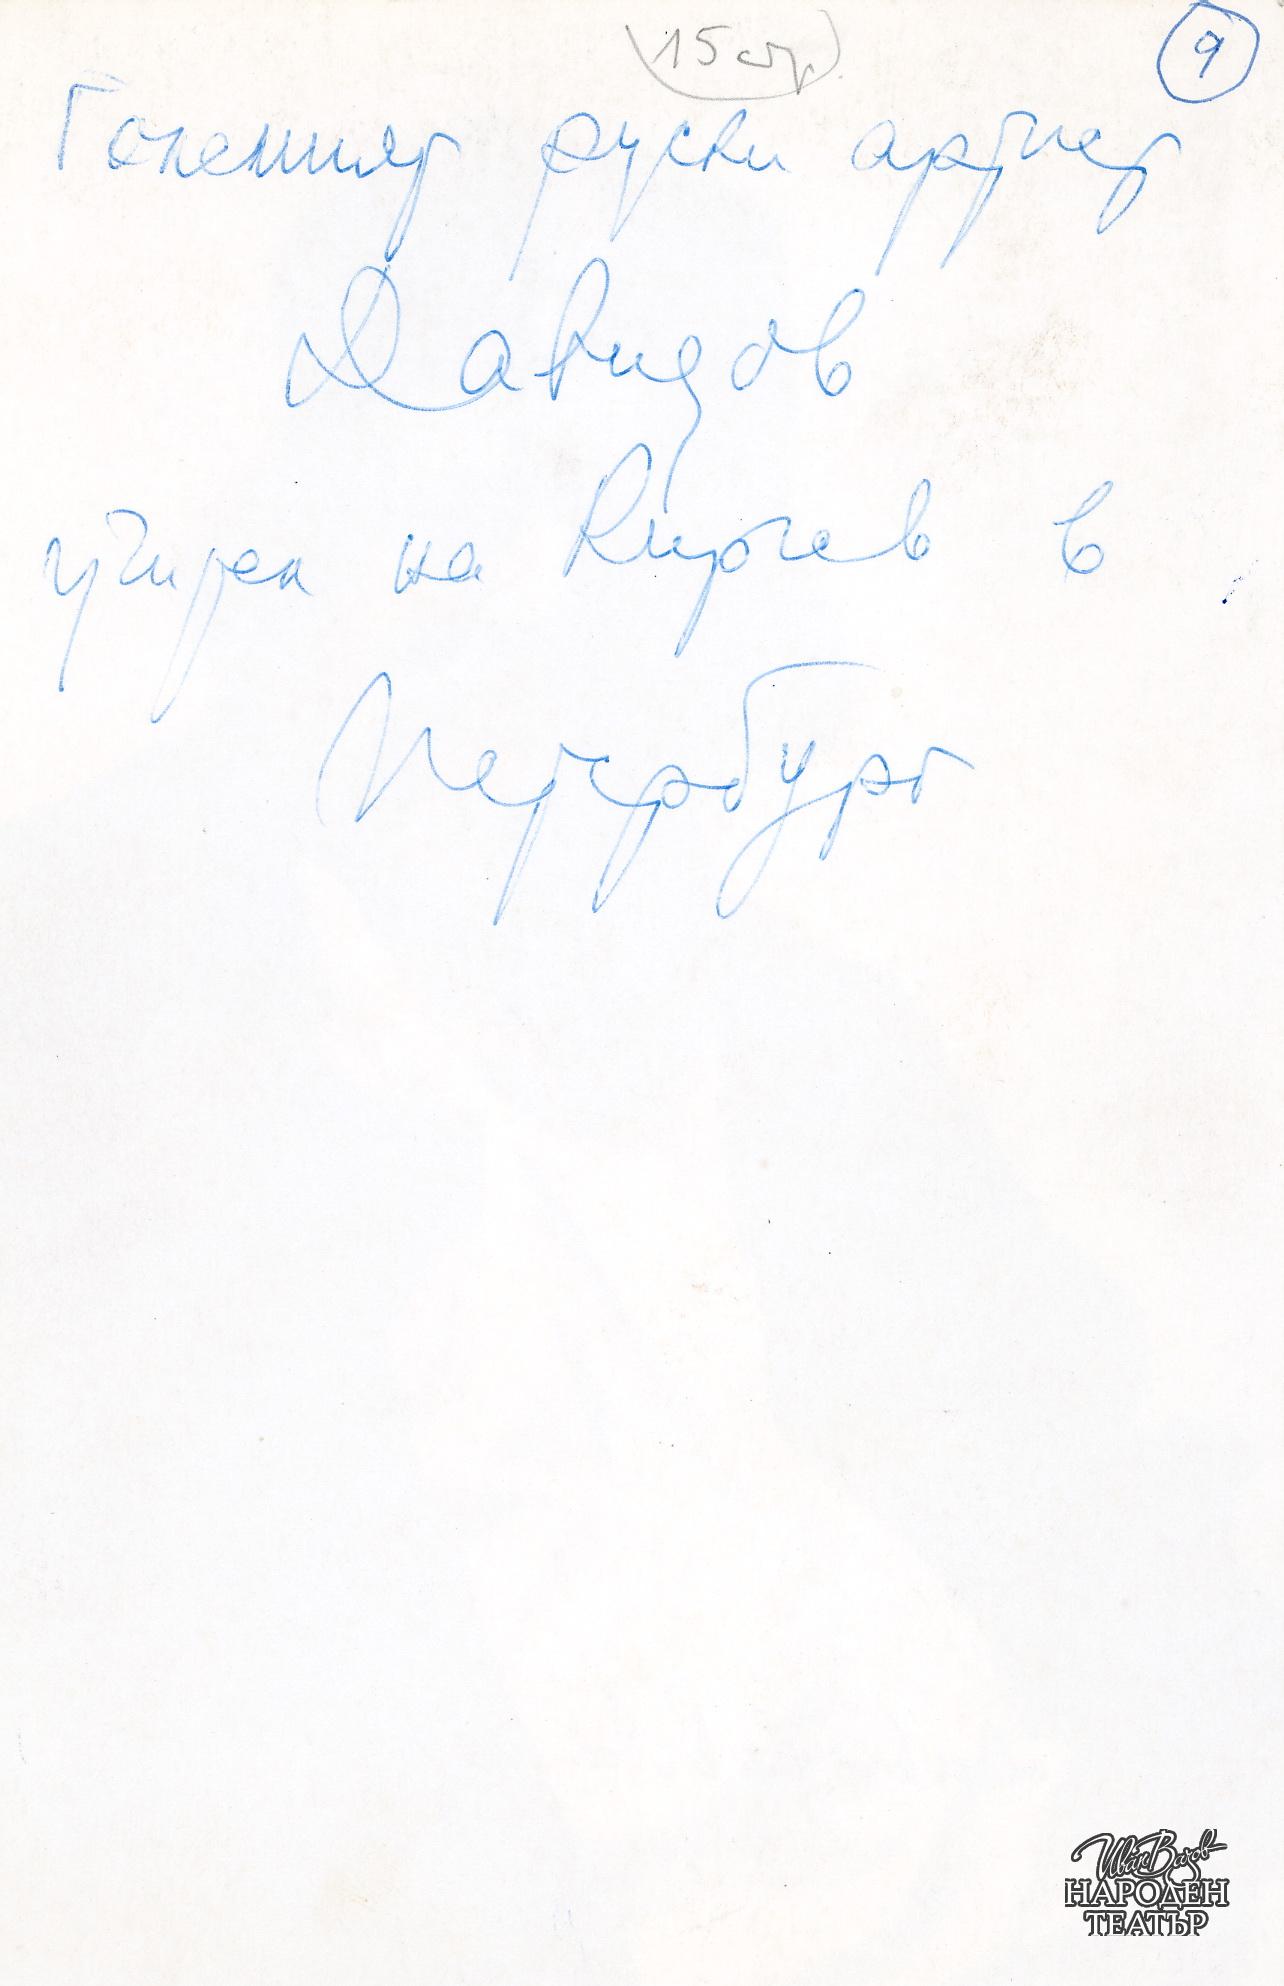 15 стр.
9
Големият руски артист
Давидов
учител на Кирчев в
Петербург
Иван Вазов
НАРОДЕН
ТЕАТЪР